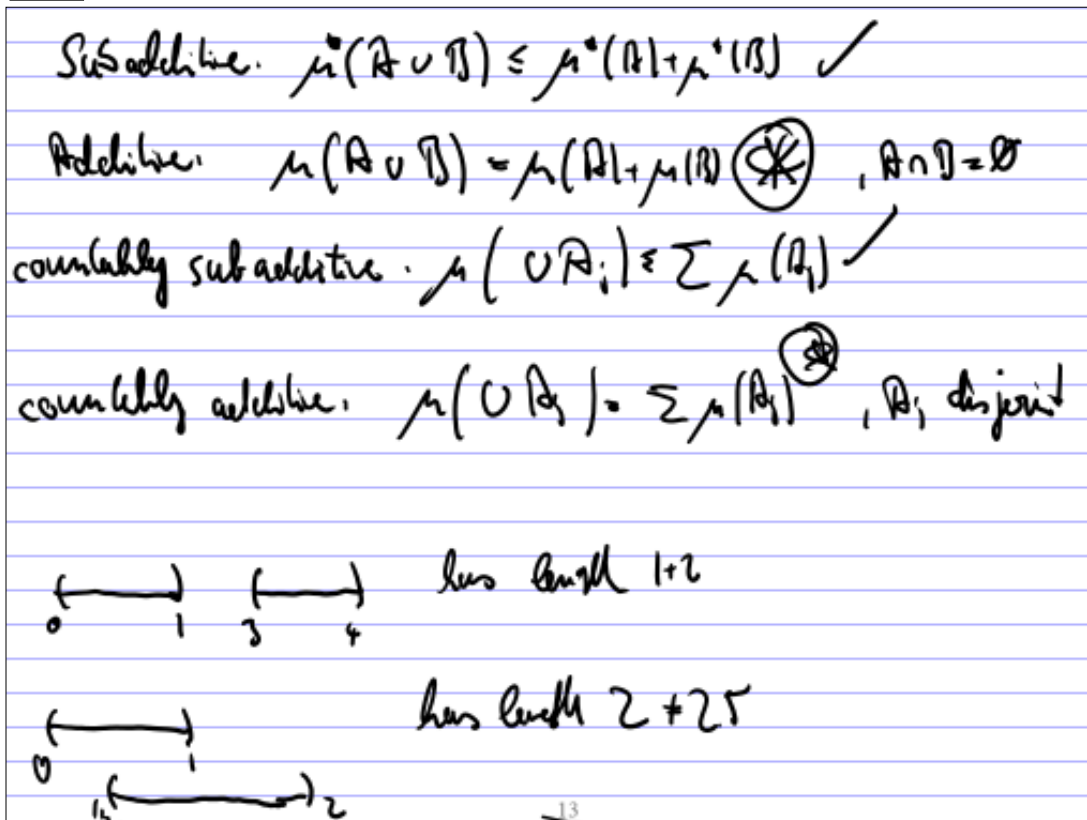 Subadditive. μ*(A ∪ B) ≤ μ*(A) + μ*(B) ✓
Additive. μ(A ∪ B) = μ(A) + μ(B) ⊛ , A ∩ B = ∅
countably subadditive. μ(∪A_i) ≤ Σ μ(A_i) ✓
countably additive. μ(∪A_i) = Σ μ(A_i) ⊛ , A_i disjoint
has length 1+2
0 1 3 4
has length 2 ≠ 25
0 1
2
13